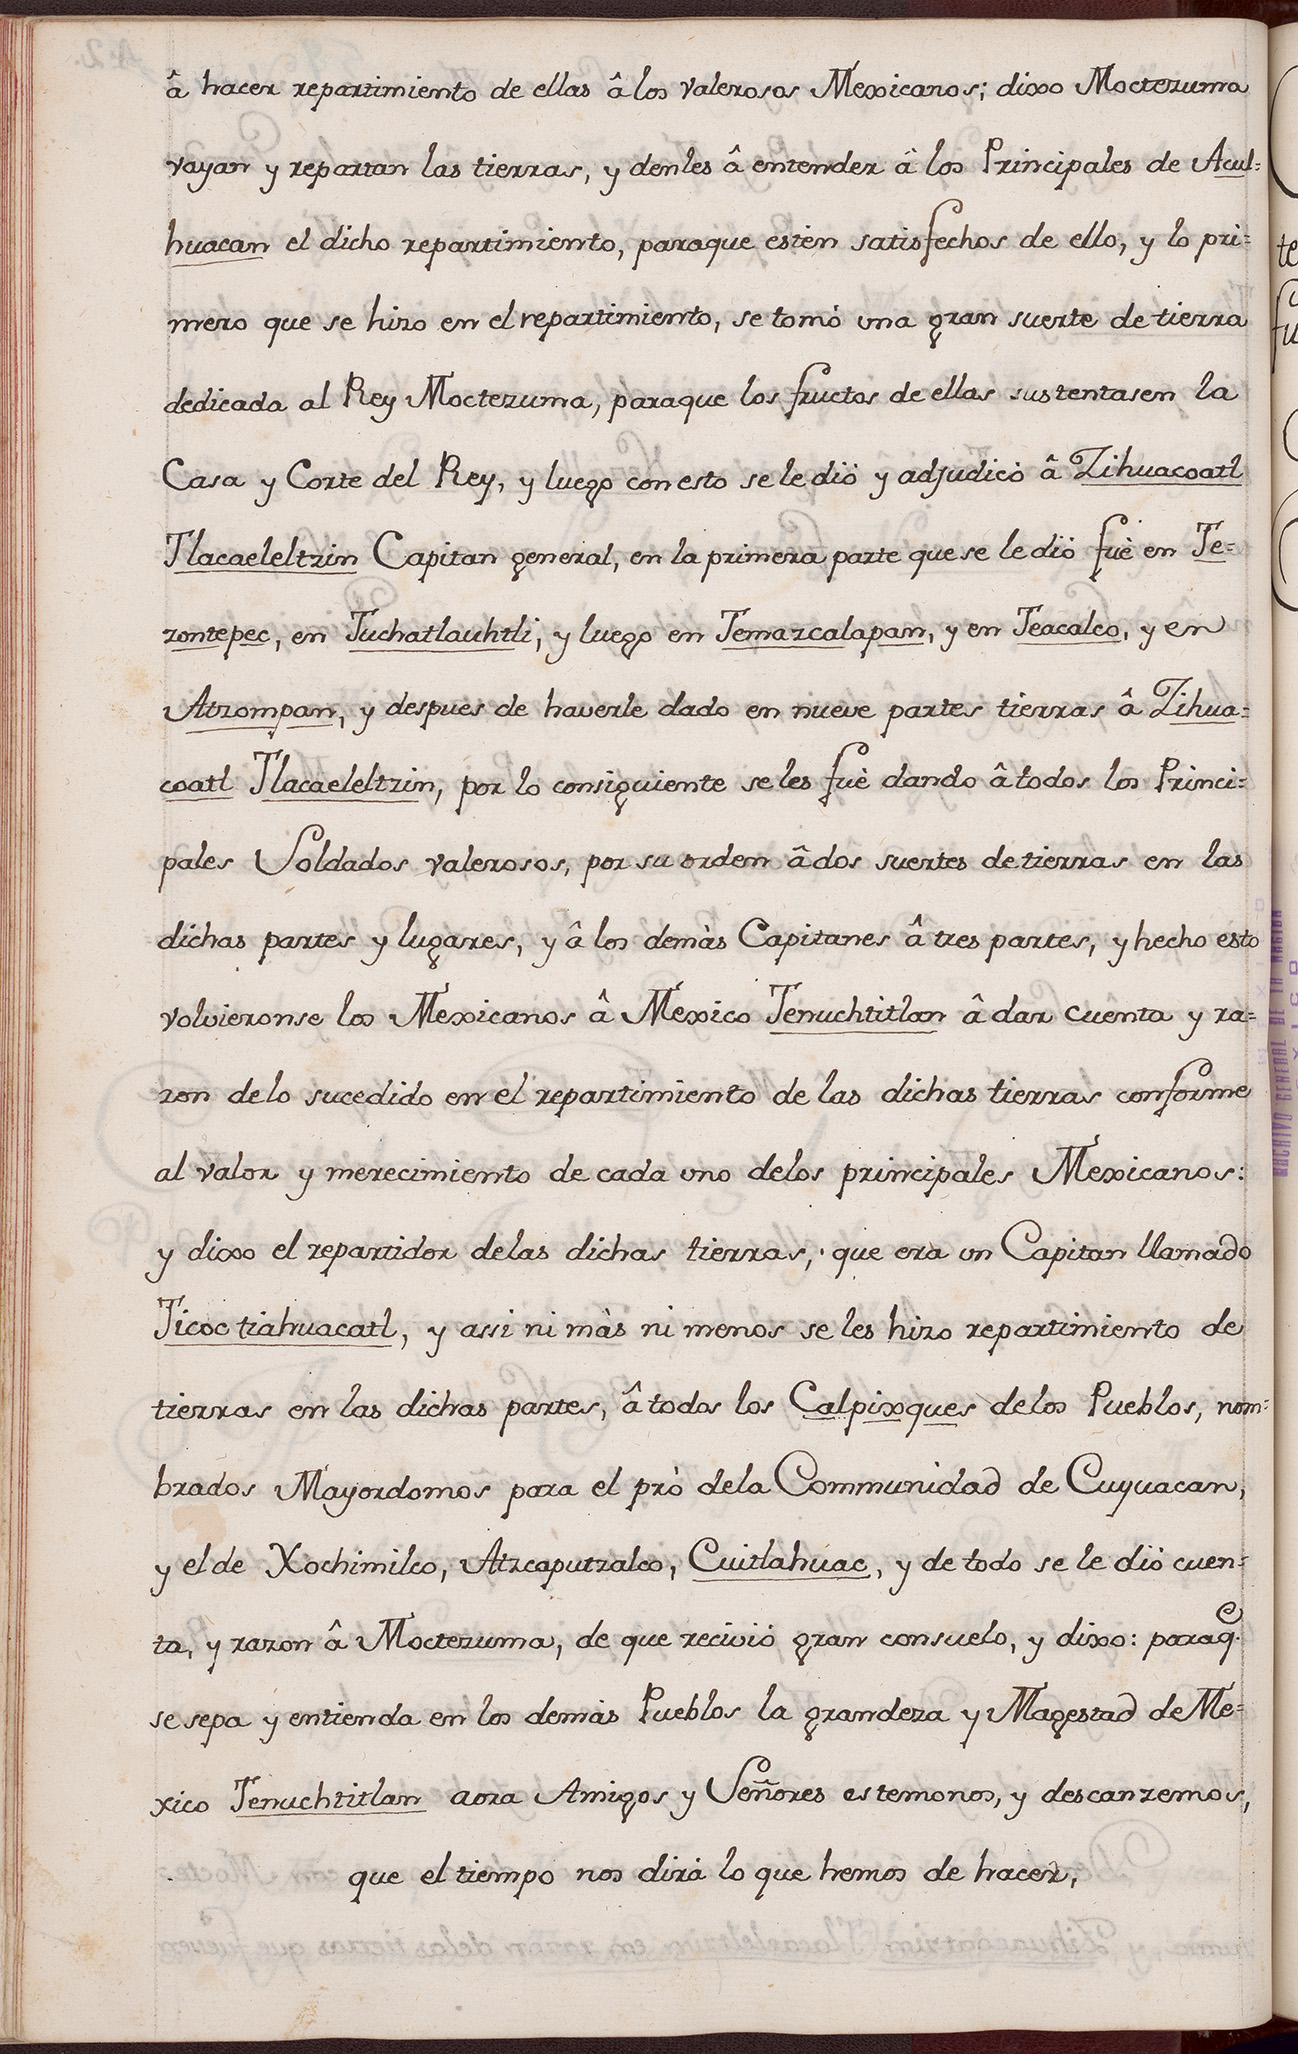 â hacer repartimiento de ellas â los valerosos Mexicanos; dixo Moctezuma
vayan y repartan las tierras, y denles â entender â los Principales de Acul=
huacan el dicho repartimiento, paraque estèn satisfechos de ello, y lo pri=
mero que se hizo en el repartimiento, se tomò una gran suerte de tierra
dedicada al Rey Moctezuma, paraque los fructos de ellas sustentasen la
Casa y Corte del Rey, y luego con esto se le diò y adjudicò â Zihuacoatl
Tlacaeleltzin Capitan general, en la primera parte que se le diò fuè en Te=
zontepec, en Tuchatlauhtli, y luego en Temazcalapan, y en Teacalco, y en
Atzompan, y despues de haverle dado en nueve partes tierras â Zihua=
coatl Tlacaeleltzin, por lo consiguiente se les fuè dando â todos los Princi=
pales Soldados valerosos, por su orden â dos suertes de tierras en las
dichas partes y lugares, y â los demàs Capitanes â tres partes, y hecho esto
volvieronse los Mexicanos â Mexico Tenuchtitlan â dar cuenta y ra=
zon delo sucedido en el repartimiento de las dichas tierras conforme
al valor y merecimiento de cada uno delos principales Mexicanos:
y dixo el repartidor delas dichas tierras, que era un Capitan llamado
Ticoc tiahuacatl, y assi ni màs ni menos se les hizo repartimiento de
tierras en las dichas partes, â todos los Calpixques delos Pueblos, nom=
brados Mayordomos para el prò dela Communidad de Cuyuacan,
y el de Xochimilco, Atzcaputzalco, Cuitlahuac, y de todo se le diò cuen=
ta, y razon â Moctezuma, de que reciviò gran consuelo, y dixo: paraq.
se sepa y entienda en los demàs Pueblos la grandeza y Magestad de Me=
xico Tenuchtitlan aora Amigos y Señores estemonos, y descanzemos,
que el tiempo nos dirà lo que hemos de hacer,
ARCHIVO GENERAL DE LA NACION